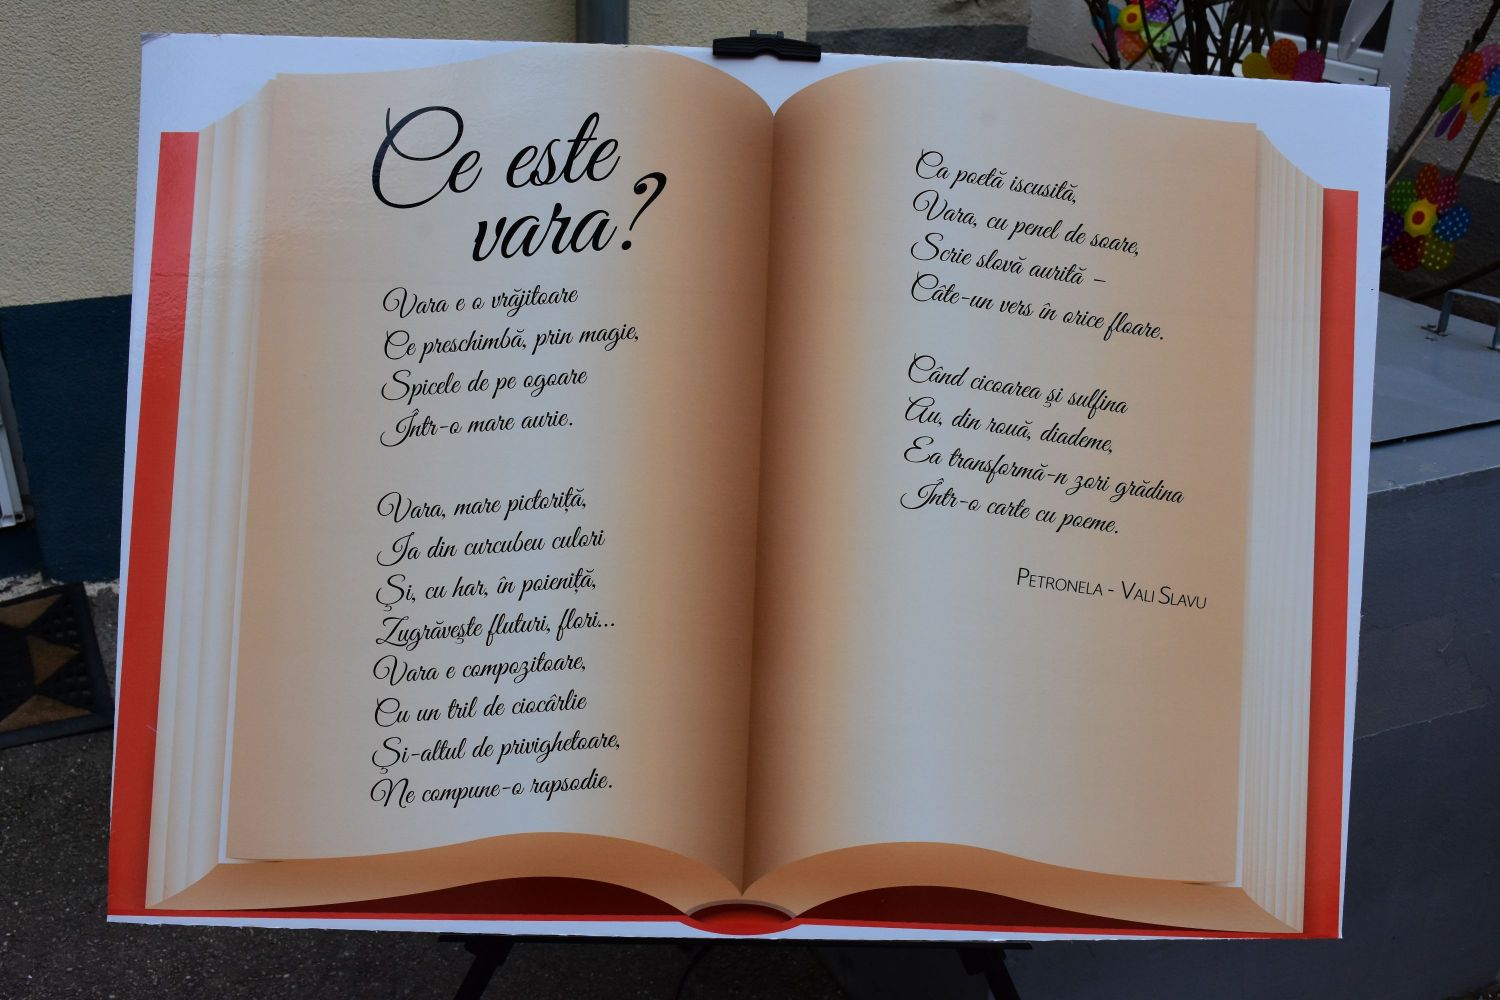 Ce este
vara?
Vara e o vrăjitoare
Ce preschimbă, prin magie,
Spicele de pe ogoare
Într-o mare aurie.
Vara, mare pictoriță,
Ia din curcubeu culori
Și, cu har, în poieniță,
Zugrăvește fluturi, flori...
Vara e compozitoare,
Cu un tril de ciocârlie
Și-altul de privighetoare,
Ne compune-o rapsodie.
Ca poetă iscusită,
Vara, cu penel de soare,
Scrie slovă aurită –
Câte-un vers în orice floare.
Când cicoarea și sulfina
Au, din rouă, diademe,
Ea transformă-n zori grădina
Într-o carte cu poeme.
PETRONELA - VALI SLAVU